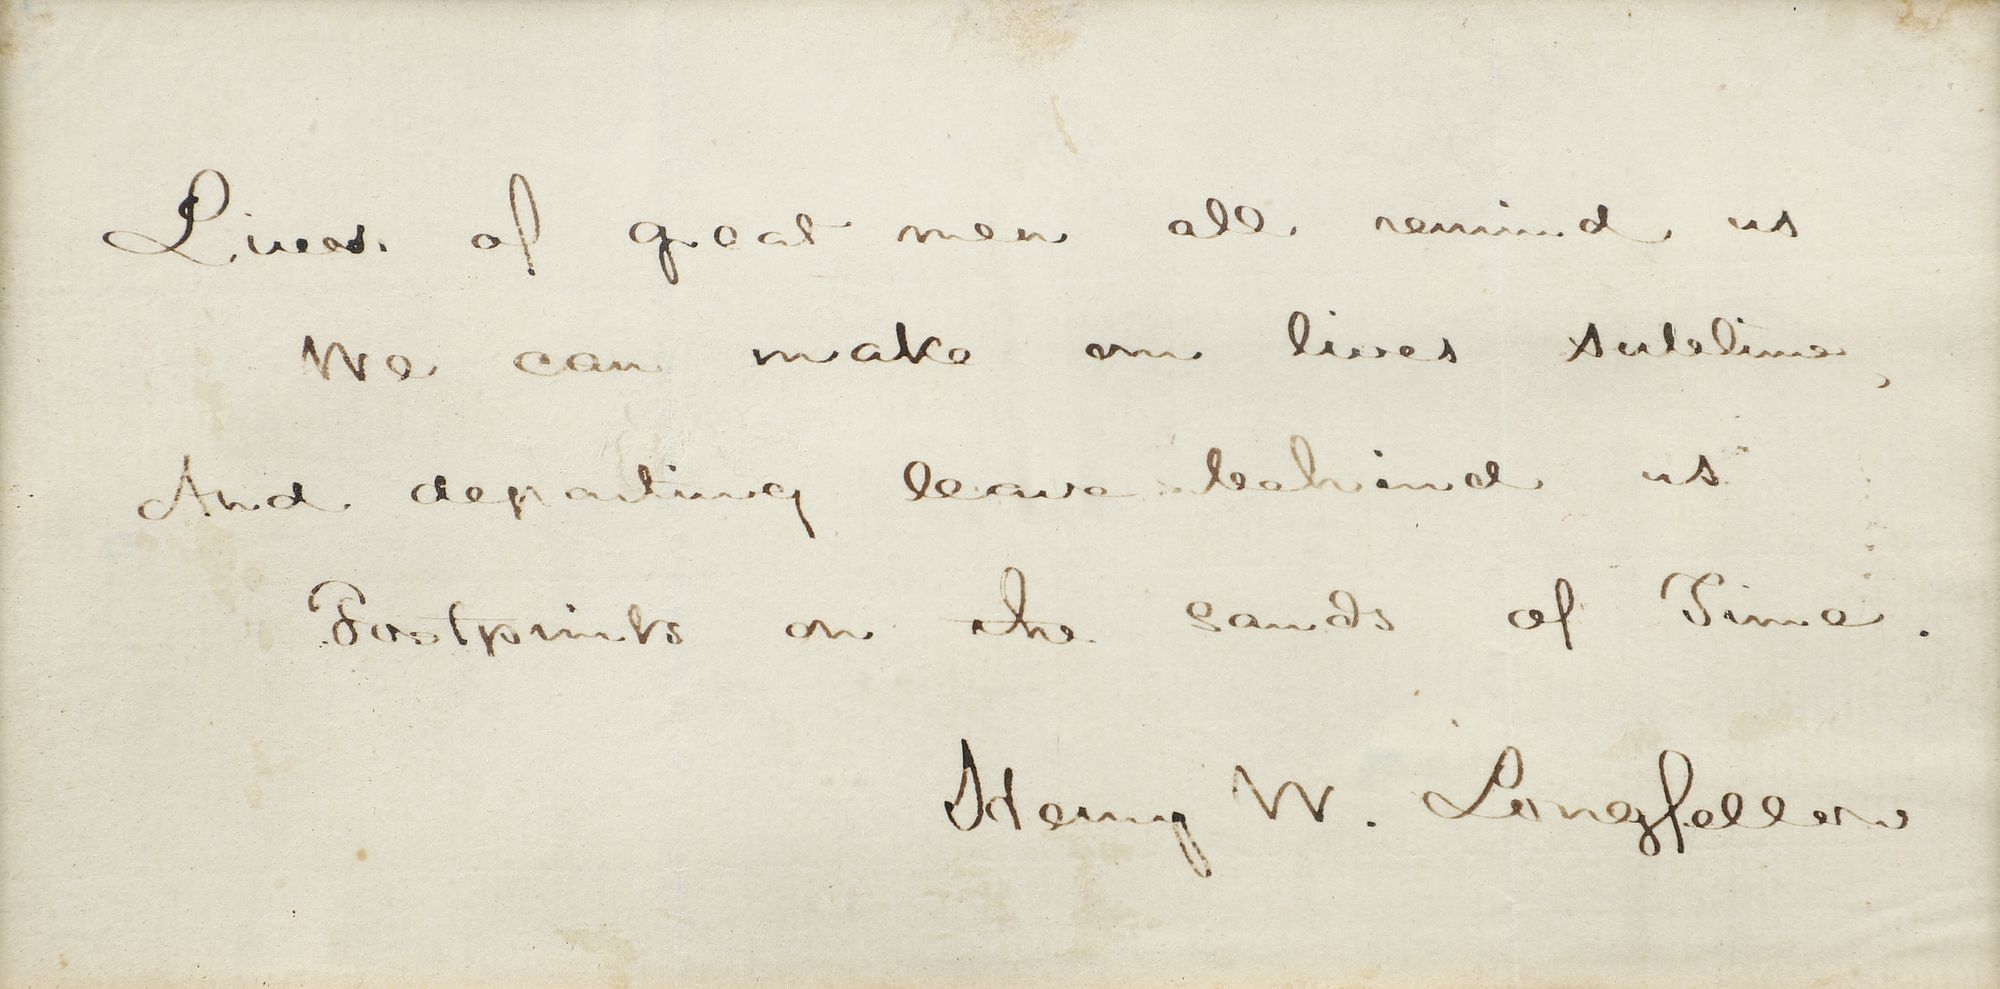 Lives of great men all remind us
We can make our lives sublime,
And departing leave behind us
Footprints on the sands of Time.
Henry W. Longfellow